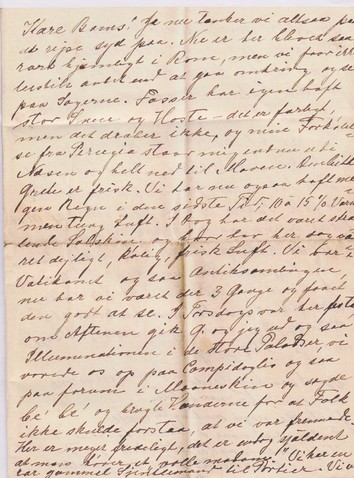 Kære Bams! Ja nu tænker vi altsaa paa
at rejse syd paa. Nu er her blevet saa
rart hjemligt i Rom, men vi faar ikke
bestilt andet end at gaa omkring og se
paa Sagerne. Fasser har igen haft
stor Hæse og Hoste – det er forbi,
men det draler ikke, og min Forkølel-
se fra Perugia staar mig endnu i
Næsen og helt ned til Maven.
Grete er frisk. Vi har nu ogsaa haft me-
gen Regn i den sidste Tid, 10 à 15% Varme
men tung Luft. I Dag har det været straa-
lende Solskin, og her har været
ret dejligt, kølig, frisk Luft. Vi var i
Vatikanet og saa Antiksamlingen,
nu har vi været der 3 Gange og faaet
den godt at se. I Torsdags var her festa
om Aftenen gik G. og jeg ud og saa
Illuminationen i de store Paladser vi
vovede os op paa Campidoglio og saa
paa forum i Maaneskin og sagde
Ce! Ce! og brugte Hænderne for at Folk
ikke skulde forstaa, at vi var fremmede.
Her er meget fredeligt, det er endog sjældent
at man hører et "volle madama". Vi har en
rar gammel Gentleman til Portier. Vi